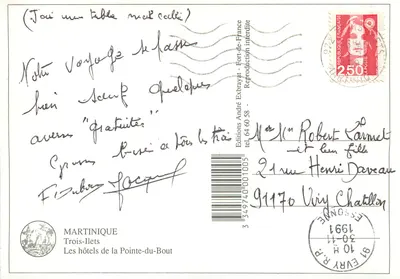 (J'ai une table
Notre voyage se passe
bien sauf quelques
averses "gratuites"
à tous les trois
Editions André Exbrayat - Fort-de-France
tel. 64 60 58 - Reproduction interdite
3 349740 001005
2,50
M. Mme Robert
et leur fille
21 rue Henri Daveau
91170 Viry Chatillon
91 EVRY R.P.
10 H
30-11
1991
ESSONNE
MARTINIQUE
Trois-Ilets
Les hôtels de la Pointe-du-Bout